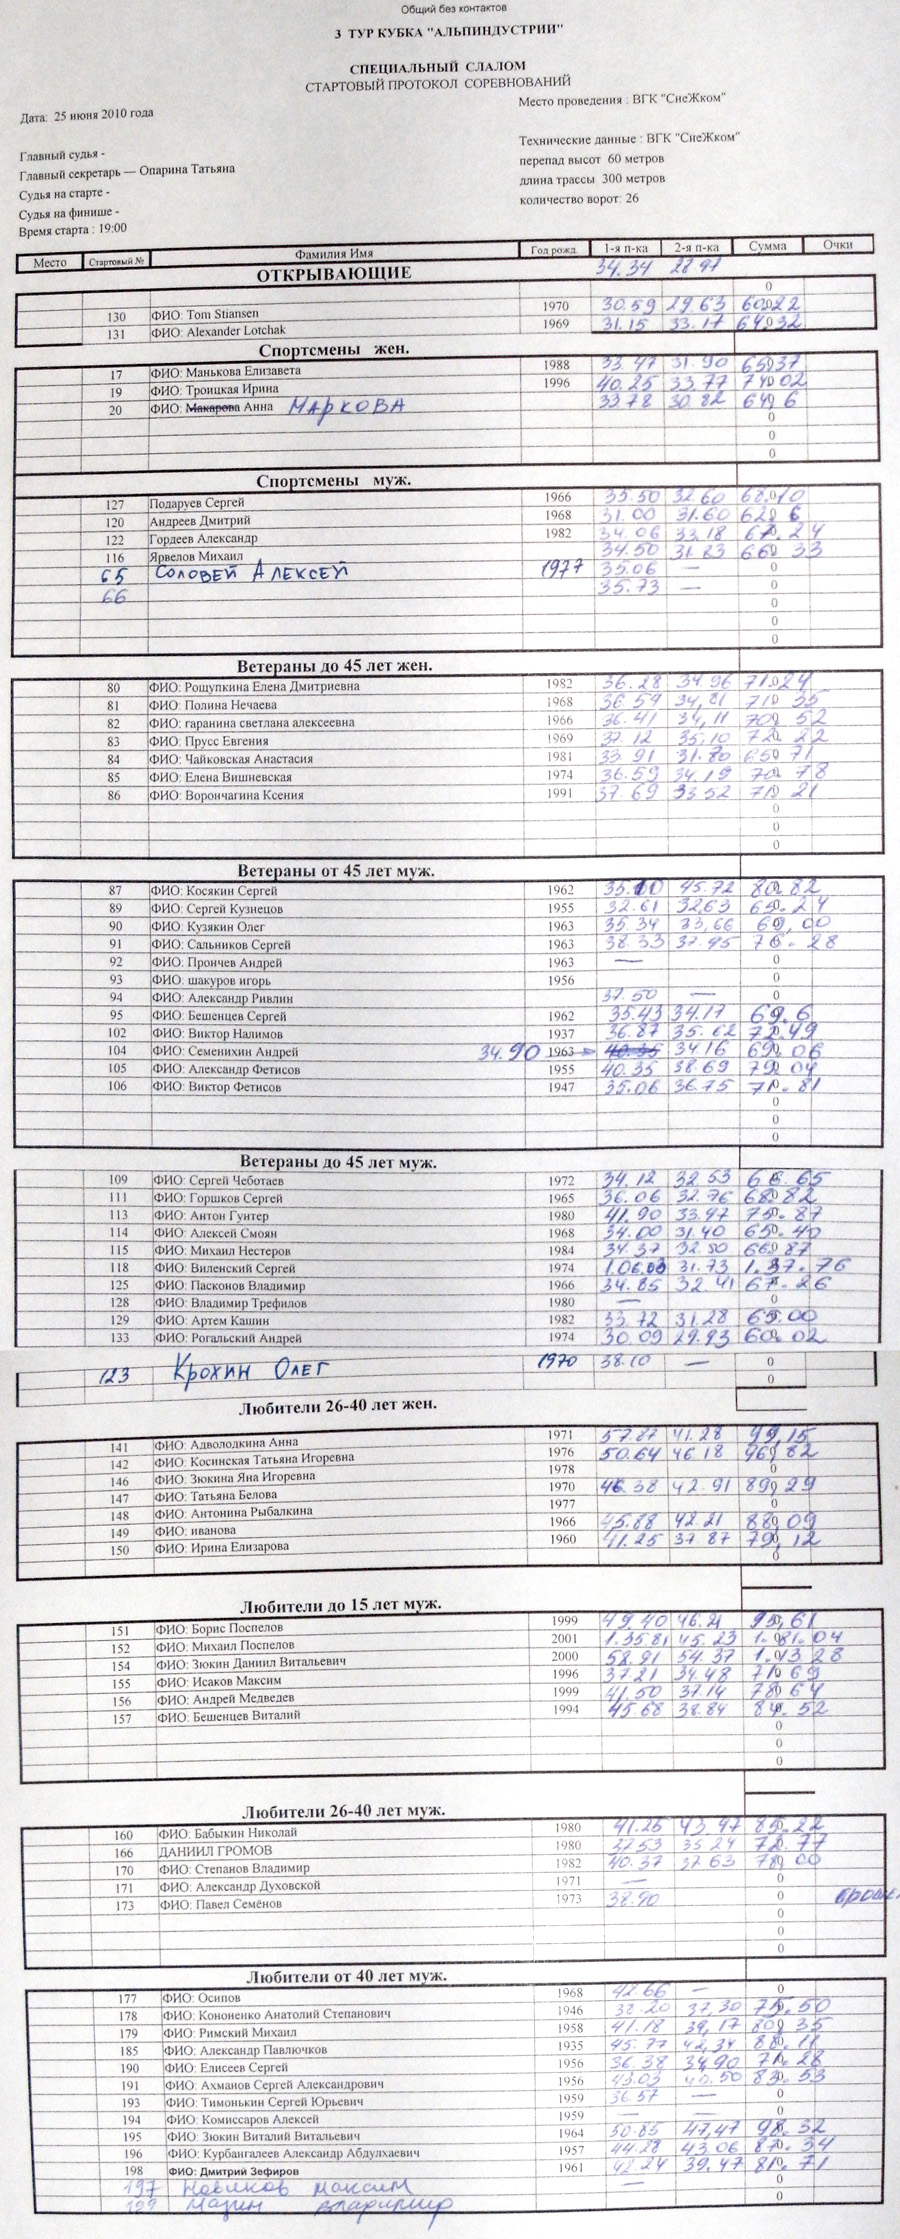 Общий без контактов
3 ТУР КУБКА "АЛЬПИНДУСТРИИ"
СПЕЦИАЛЬНЫЙ СЛАЛОМ
СТАРТОВЫЙ ПРОТОКОЛ СОРЕВНОВАНИЙ
Дата: 25 июня 2010 года
Место проведения : ВГК "СнеЖком"
Технические данные : ВГК "СнеЖком"
Главный судья -
перепад высот 60 метров
Главный секретарь — Опарина Татьяна
длина трассы 300 метров
Судья на старте -
количество ворот: 26
Судья на финише -
Время старта : 19:00
Место Стартовый № Фамилия Имя Год рожд. 1-я п-ка 2-я п-ка Сумма Очки
ОТКРЫВАЮЩИЕ 34.34 28.97
0
130 ФИО: Tom Stiansen 1970 30.59 29.63 60.22
131 ФИО: Alexander Lotchak 1969 31.15 33.17 64.32
Спортсмены жен.
17 ФИО: Манькова Елизавета 1988 33.47 31.90 65.37
19 ФИО: Троицкая Ирина 1996 40.25 33.77 74.02
20 ФИО: Макарова Анна МАРКОВА 33.78 30.82 64.6
0
0
0
Спортсмены муж.
127 Подаруев Сергей 1966 35.50 32.60 68.10
120 Андреев Дмитрий 1968 31.00 31.60 62.6
122 Гордеев Александр 1982 34.06 33.18 67.24
116 Ярвелов Михаил 34.50 31.83 66.33
65 СОЛОВЕЙ АЛЕКСЕЙ 1977 35.06 — 0
66 35.73 — 0
0
0
0
Ветераны до 45 лет жен.
80 ФИО: Рощупкина Елена Дмитриевна 1982 36.28 34.96 71.24
81 ФИО: Полина Нечаева 1968 36.54 34,81 71.35
82 ФИО: гаранина светлана алексеевна 1966 36.41 34,11 70.52
83 ФИО: Прусс Евгения 1969 37.12 35,10 72.22
84 ФИО: Чайковская Анастасия 1981 33.91 31.80 65.71
85 ФИО: Елена Вишневская 1974 36.59 34.19 70.78
86 ФИО: Ворончагина Ксения 1991 37.69 33 52 71.21
0
0
0
Ветераны от 45 лет муж.
87 ФИО: Косякин Сергей 1962 35.10 45.72 80.82
89 ФИО: Сергей Кузнецов 1955 32.61 32,63 65.24
90 ФИО: Кузякин Олег 1963 35.34 33,66 69,00
91 ФИО: Сальников Сергей 1963 38.33 37.95 76.28
92 ФИО: Прончев Андрей 1963 — 0
93 ФИО: шакуров игорь 1956 0
94 ФИО: Александр Ривлин 37.50 — 0
95 ФИО: Бешенцев Сергей 1962 35.43 34.17 69.6
102 ФИО: Виктор Налимов 1937 36.87 35.62 72.49
104 ФИО: Семенихин Андрей 34.90 1963 40.35 34 16 69.06
105 ФИО: Александр Фетисов 1955 40.35 38.69 79.04
106 ФИО: Виктор Фетисов 1947 35.06 36.75 71.81
0
0
0
Ветераны до 45 лет муж.
109 ФИО: Сергей Чеботаев 1972 34.12 32.53 66.65
111 ФИО: Горшков Сергей 1965 36.06 32.76 68.82
113 ФИО: Антон Гунтер 1980 41.90 33.97 75.87
114 ФИО: Алексей Смоян 1968 34.00 31.40 65.40
115 ФИО: Михаил Нестеров 1984 34.37 32.50 66.87
118 ФИО: Виленский Сергей 1974 1.06.03 31.73 1.37.76
125 ФИО: Пасконов Владимир 1966 34.85 32.41 67.26
128 ФИО: Владимир Трефилов 1980 — 0
129 ФИО: Артем Кашин 1982 33.72 31.28 65.00
133 ФИО: Рогальский Андрей 1974 30.09 29.93 60.02
123 КРОХИН ОЛЕГ 1970 38.10 — 0
0
Любители 26-40 лет жен.
141 ФИО: Адволодкина Анна 1971 57.87 41.28 99,15
142 ФИО: Косинская Татьяна Игоревна 1976 50.64 46.18 96,82
146 ФИО: Зюкина Яна Игоревна 1978 0
147 ФИО: Татьяна Белова 1970 46.38 42.91 89,29
148 ФИО: Антонина Рыбалкина 1977 0
149 ФИО: иванова 1966 45.88 42.21 88,09
150 ФИО: Ирина Елизарова 1960 41.25 37 87 79,12
0
Любители до 15 лет муж.
151 ФИО: Борис Поспелов 1999 49.40 46.21 95,61
152 ФИО: Михаил Поспелов 2001 1.35.81 45.23 1.81.04
154 ФИО: Зюкин Даниил Витальевич 2000 58.91 54.37 1.13 28
155 ФИО: Исаков Максим 1996 37.21 34.48 71.69
156 ФИО: Андрей Медведев 1999 41.50 37.14 78.64
157 ФИО: Бешенцев Виталий 1994 45.68 38.84 84.52
0
0
0
Любители 26-40 лет муж.
160 ФИО: Бабыкин Николай 1980 41.25 43,97 85.22
166 ДАНИИЛ ГРОМОВ 1980 37.53 35 24 72.77
170 ФИО: Степанов Владимир 1982 40.37 37 63 78.00
171 ФИО: Александр Духовской 1971 — 0
173 ФИО: Павел Семёнов 1973 38.90 0
0
0
0
Любители от 40 лет муж.
177 ФИО: Осипов 1968 42.66 — 0
178 ФИО: Кононенко Анатолий Степанович 1946 38.20 37,30 75.50
179 ФИО: Римский Михаил 1958 41.18 39,17 80.35
185 ФИО: Александр Павлючков 1935 45.77 42,34 88.11
190 ФИО: Елисеев Сергей 1956 36.38 34,90 71.28
191 ФИО: Ахманов Сергей Александрович 1956 43.03 40.50 83.53
193 ФИО: Тимонькин Сергей Юрьевич 1959 36.57 — 0
194 ФИО: Комиссаров Алексей 1959 — — 0
195 ФИО: Зюкин Виталий Витальевич 1964 50.85 47,47 98.32
196 ФИО: Курбангалеев Александр Абдулхаевич 1957 44.28 43.06 87.34
198 ФИО: Дмитрий Зефиров 1961 42.24 39.47 81.71
197 Новиков максим — 0
199 Мазин владимир 0